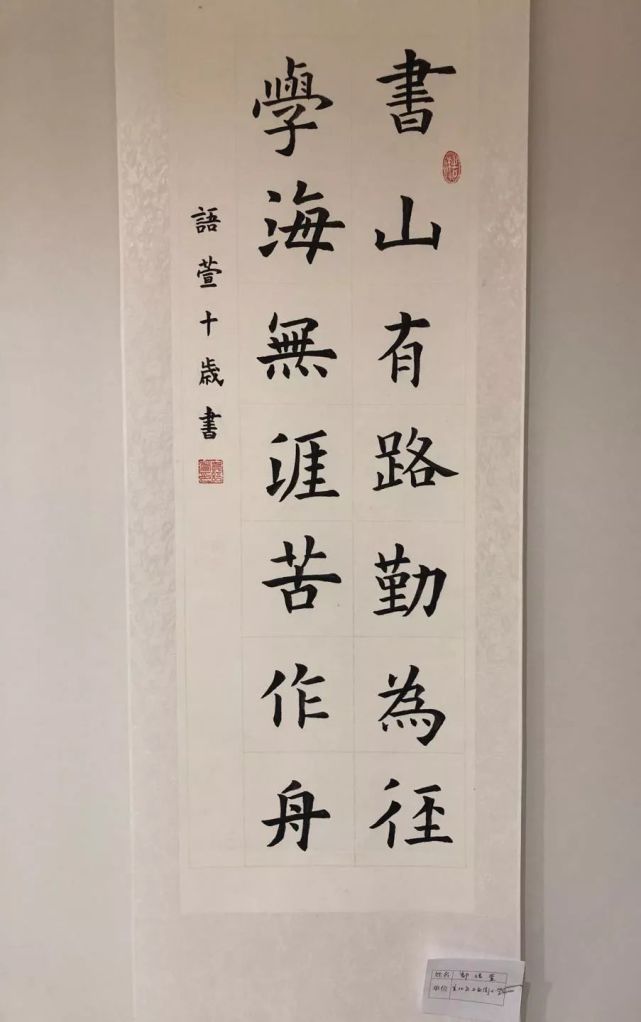 書山有路勤為徑
學海無涯苦作舟
語萱十歲書
姓名
單位